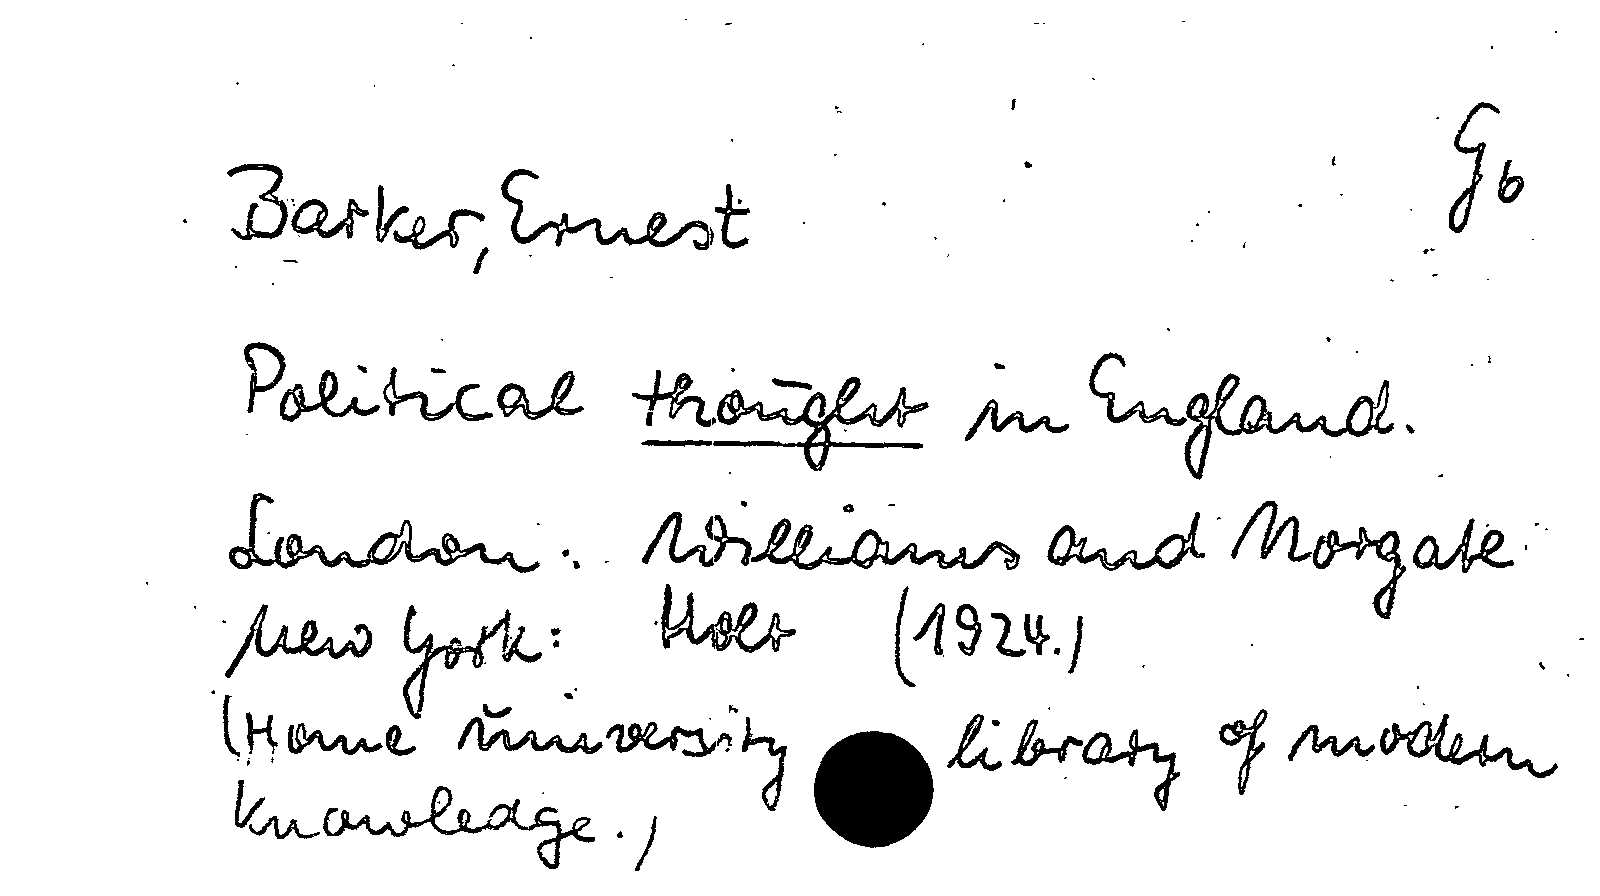 Gb
Barker, Ernest
Political thought in England.
London: Williams and Norgate
New York: Holt (1924.)
(Home university library of modern
knowledge.)